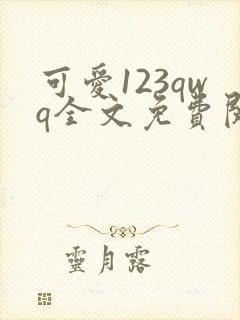 可愛123qw
q全文免費閱
靈月露